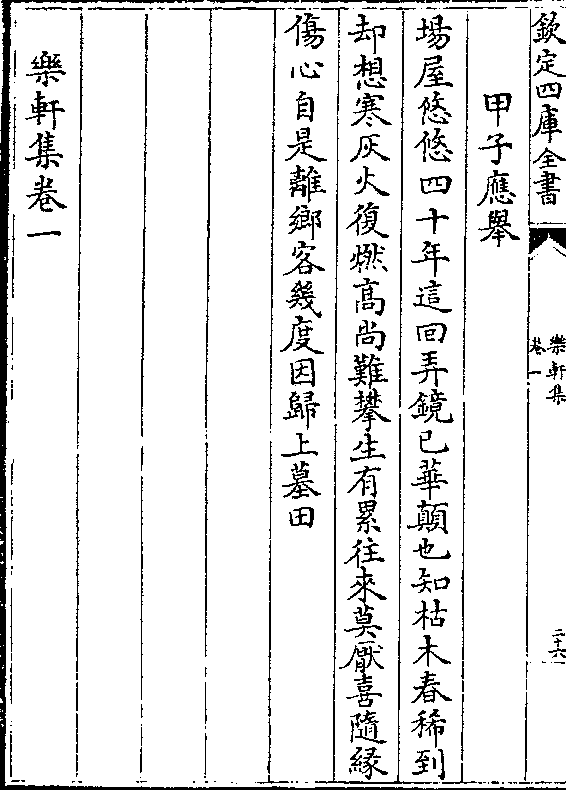 欽定四庫全書
樂軒集
卷一
二十六
甲子應舉
場屋悠悠四十年這回弄鏡已華顛也知枯木春稀到
却想寒灰火復燃髙尚難攀生有累往來莫厭喜隨緣
傷心自是離鄉客幾度因歸上墓田
樂軒集卷一